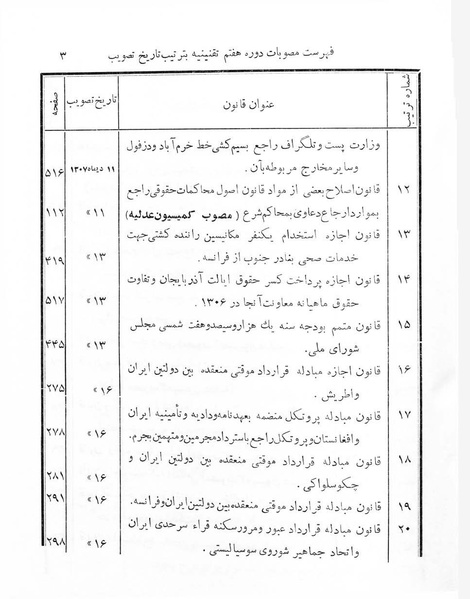 فهرست مصوبات دوره هفتم تقنینیه بترتیب تاریخ تصویب ۳
شماره ترتیب عنوان قانون تاریخ تصویب صفحه
وزارت پست و تلگراف راجع بسیم کشی خط خرم آباد و دزفول
و سایر مخارج مربوطه بآن. ۱۱ دیماه ۱۳۰۷ ۵۱۶
۱۲ قانون اصلاح بعضی از مواد قانون اصول محاکمات حقوقی راجع
بموارد ارجاع دعاوی بمحاکم شرع (مصوب کمیسیون عدلیه) ۱۱ » ۱۱۲
۱۳ قانون اجازه استخدام یکنفر مکانیسین راننده کشتی جهت
خدمات صحی بنادر جنوب از فرانسه. ۱۳ » ۴۱۹
۱۴ قانون اجازه پرداخت کسر حقوق ایالت آذربایجان و تفاوت
حقوق ماهیانه معاونت آنجا در ۱۳۰۶ ۱۳ » ۵۱۷
۱۵ قانون متمم بودجه سنه یك هزار و سیصد و هفت شمسی مجلس
شورای ملی. ۱۳ » ۴۴۵
۱۶ قانون اجازه مبادله قرارداد موقتی منعقده بین دولتین ایران
و اطریش. ۱۶ » ۲۷۵
۱۷ قانون مبادله پروتکل منضمه بعهدنامه ودادیه و تأمینیه ایران
و افغانستان و پروتکل راجع باسترداد مجرمین و متهمین بجرم. ۱۶ » ۲۷۸
۱۸ قانون مبادله قرارداد موقتی منعقده بین دولتین ایران و
چکوسلواکی. ۱۶ » ۲۸۱
۱۹ قانون مبادله قرارداد موقتی منعقده بین دولتین ایران و فرانسه. ۱۶ » ۲۹۱
۲۰ قانون مبادله قرارداد عبور و مرور سکنه قراء سرحدی ایران
و اتحاد جماهیر شوروی سوسیالیستی. ۱۶ » ۲۹۸